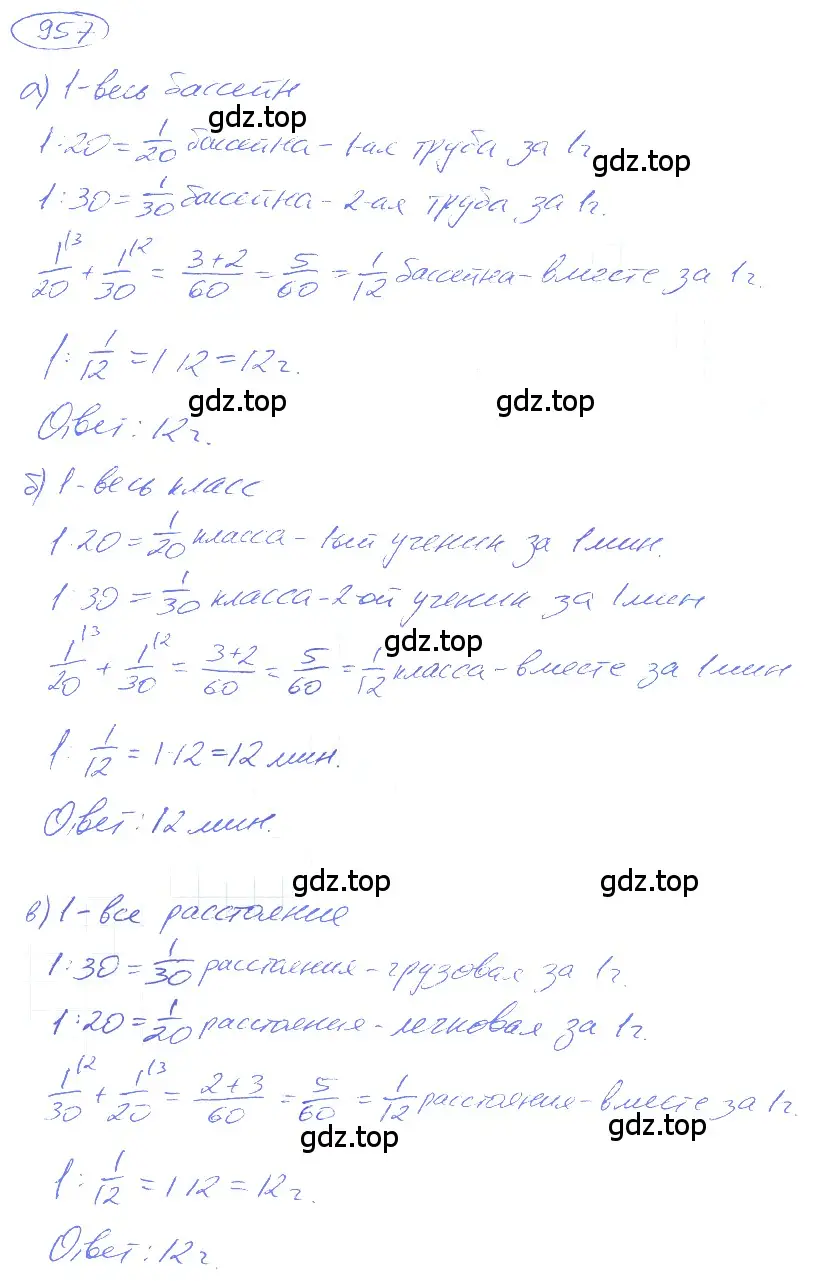 957
а) 1-весь бассейн
gdz.top
1:20=1/20 бассейна-1-ая труба за 1ч
gdz.top
1:30=1/30 бассейна-2-ая труба за 1ч.
1/20 \3 + 1/30 \2 = 3+2/60 = 5/60 = 1/12 бассейна-вместе за 1ч.
1: 1/12 =1 12=12ч.
gdz.top gdz.top
Ответ: 12ч.
б) 1-весь класс
1·20=1/20 класса-1ый ученик за 1мин.
1 30=1/30 класса-2-ой ученик за 1мин
gdz.top
1/20 \3 + 1/30 \2 = 3+2/60 = 5/60 = 1/12 класса-вместе за 1мин
1· 1/12 =1·12=12мин.
Ответ: 12мин.
gdz.top gdz.top
в) 1-все расстояние
1:30=1/30 расстояния-грузовая за 1ч.
1:20=1/20 расстояния-легковая за 1ч.
1/30 \2 + 1/20 \3 = 2+3/60 = 5/60 = 1/12 расстояния-вместе за 1ч.
gdz.top gdz.top
1: 1/12 =1 12=12ч.
Ответ: 12ч